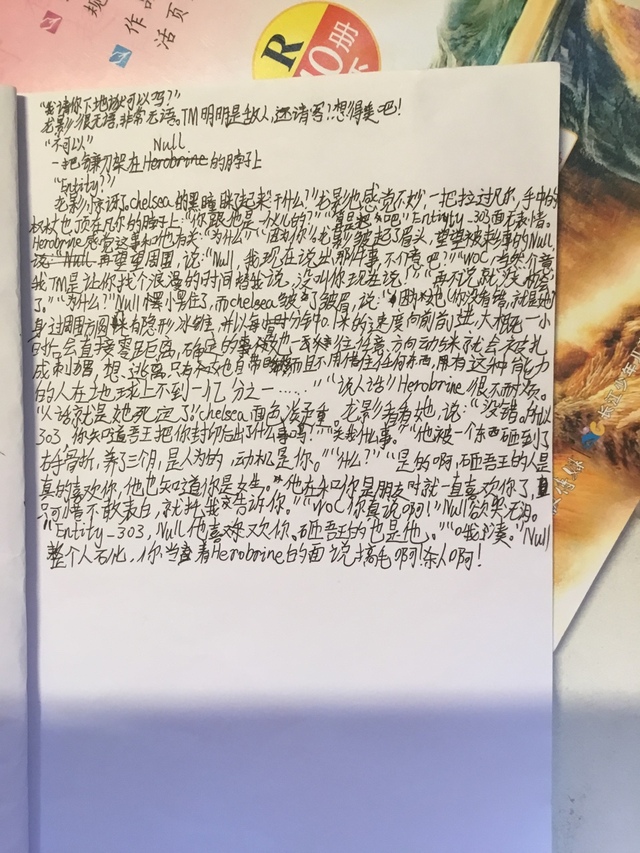 规
作品
活页
R
10册
"我请你下地狱可以吗?"
龙影很无语,非常无语。TM明明是敌人,还请客?想得美吧!
"不可以" Null
一把镰刀架在Herobrine的脖子上
"Entity?"
龙影惊讶了chelsea的黑暗
干什么?"龙影也感觉不妙,一把拉过凡尔,手中的
权杖也顶在凡尔的脖子上:"你跟他是一伙儿的?"
吧"Entiny_303面无表情。
Herobrine感觉这事和他有关:"为什么""因为你"龙影皱起了眉头,望望被
的Null,
再望望周围,说:"Null,我现在说出那件事不介意吧?""WOC,当然介意
我TM是让你找个浪漫的时间替我说,没叫你现在说!""再不说就没机会
了。""为什么?"Null懵懵住了,而chelsea皱了皱眉,说:
你没看错,就是她
身过周围方圆
有隐形冰锥,并以每
分钟0.1米的速度向前
进,大概一小
时后会直接零距离,
往任意方向动
米就会被扎
成刺猬,想逃
只有
自带
而且不用借住任何东西,拥有这种能力
的人在地球上不到一亿分之一……""说人话!!Herobrine很不耐烦。
"人话就是她死定了!!chelsea面色浅
龙影看看她,说:"没错。所以
303,你知道吾王把你封印后出了什么事吗?""关我什么事。""他被一个东西砸到了
右手骨折,养了三个月,是人为的,动机是你。""什么?""是的啊,砸吾王的人是
真的喜欢你,他也知道你是女生。"他在
你是朋友时就一直喜欢你了,
只可惜不敢表白,就托我告诉你。""WOC你真说啊!"Null欲哭无泪。
"Entity_303,Null他喜欢你。砸吾王的也是他。"
"Null
整个人石化,你当着Herobrine的面说搞毛啊!杀人啊!
长江少年